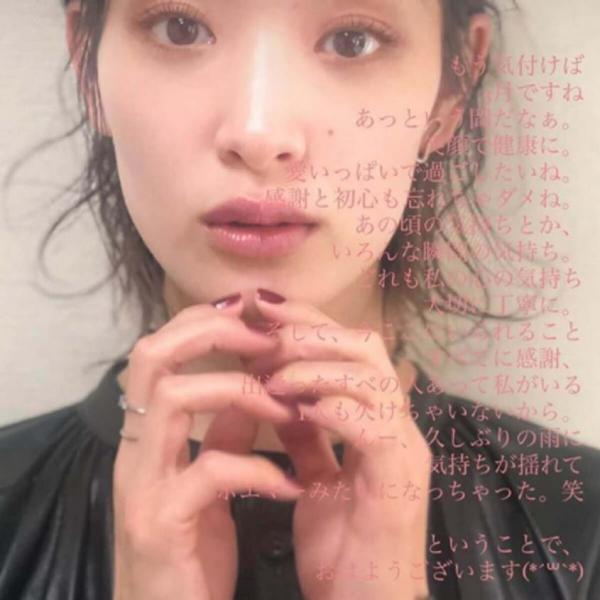 もう気付けば
月ですね
あっという間だなぁ。
笑顔で健康に。
愛いっぱいで過ごしたいね。
感謝と初心も忘れちゃダメね。
あの頃の気持ちとか、
いろんな瞬間の気持ち。
どれも私の心の気持ち
大切に丁寧に。
そして、今ここにいられること
すべてに感謝、
出逢ったすべの人あって私がいる
1人も欠けちゃいないから。
んー、久しぶりの雨に
気持ちが揺れて
ポエマーみたいになっちゃった。笑
ということで、
おはようございます(*´꒳`*)